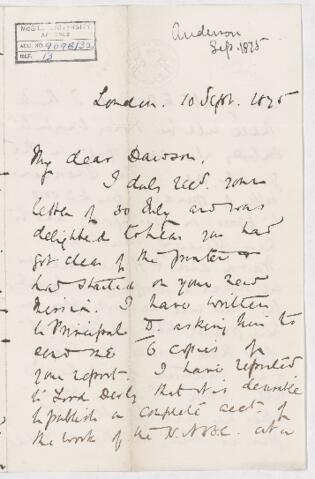 McGILL UNIVERSITY
ARCHIVES
ACC. NO. 909B/32
REF. 13
Anderson
Sep. 1875
London. 10 Sept. 1875
My dear Dawson,
I duly recd. your
letter of 30 July and was
delighted to hear you had
got clear of the printer &
had started on your new
Mission. I have written
to Principal D. asking him to
send me 6 copies of
your report. I have reported
to Lord Derby that it is desirable
to publish a complete acct. of
the work of the N.A.B.C. at